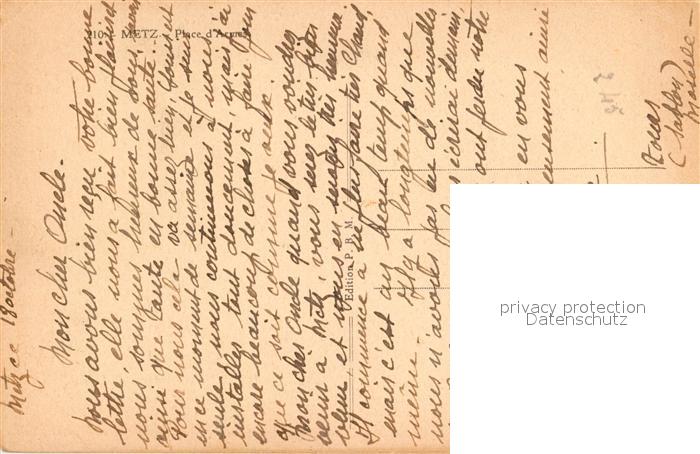 210 - METZ - Place d'Armes
Metz ce 18 octobre -
Mon cher Oncle -
nous avons bien reçu votre bonne
lettre, elle nous a fait bien plaisir
nous sommes heureux de vous savoir
ainsi que tante en bonne santé.
Pour nous cela va assez bien, sommes
en ce moment de semaine et je suis
seule, nous continuons à nous
installer tout doucement, mais il y a
encore beaucoup de choses à faire pour
que ce soit comme je veux.
Mon cher Oncle quand vous voudrez
venir à Metz vous serez les très bien
venu et nous en serons très heureux
Il commence à ne plus faire très chaud,
mais c'est un beau temps quand
même. Il y a longtemps que
nous n'avons pas eu de nouvelles
écrirai demain,
ont perdu notre
en vous
ainsi
Edition P. B. M.
privacy protection
Datenschutz